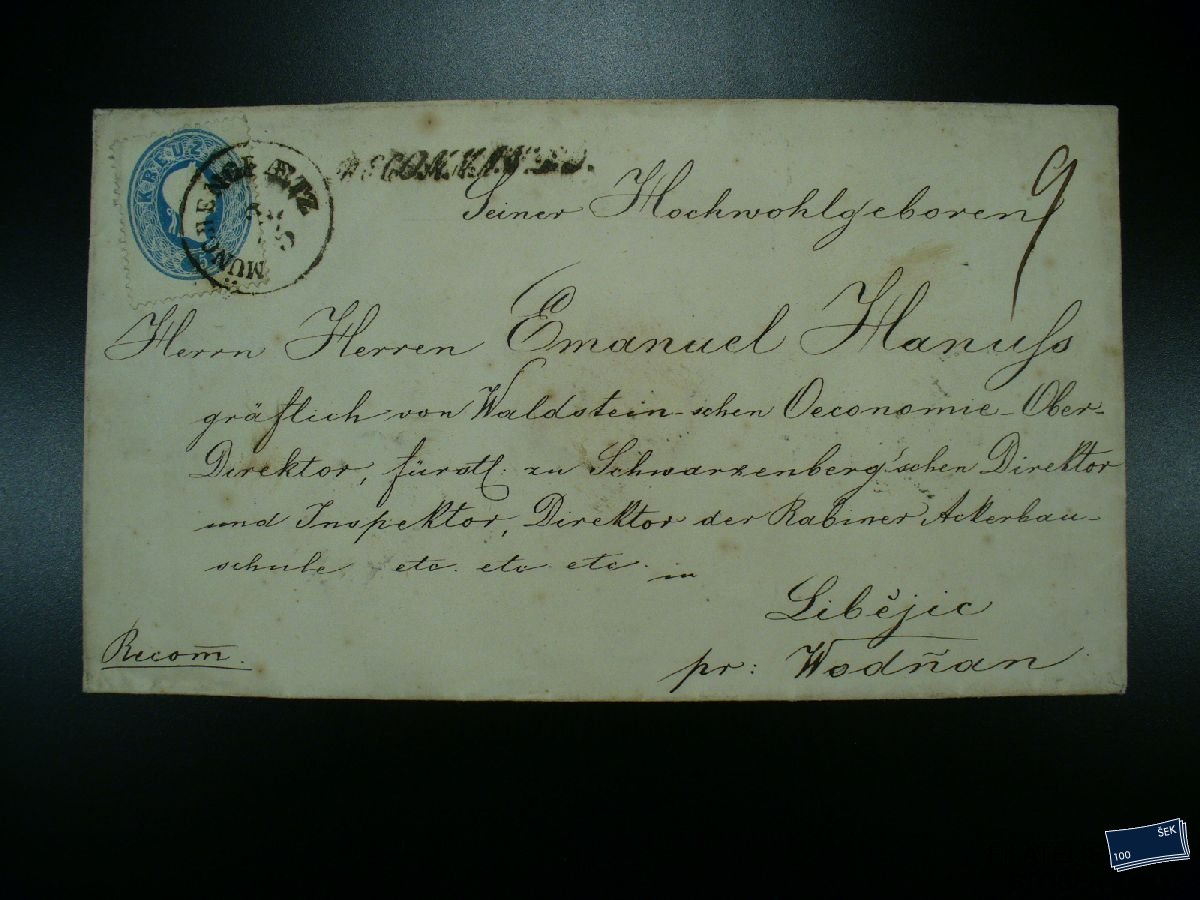 KREUZ
MÜNCHENGRÆTZ
RECOMMAND.
Seiner Hochwohlgeboren
9
Herrn Herren Emanuel Hanuſs
gräflich von Waldstein-schen Oeconomie-Ober-
Direktor, fürstl: zu Schwarzenberg'schen Direktor
und Inspektor, Direktor der Rabiner Ackerbau-
schule etc. etc etc. in
Libějic
Recom̄.
pr: Wodňan
100 ŠEK